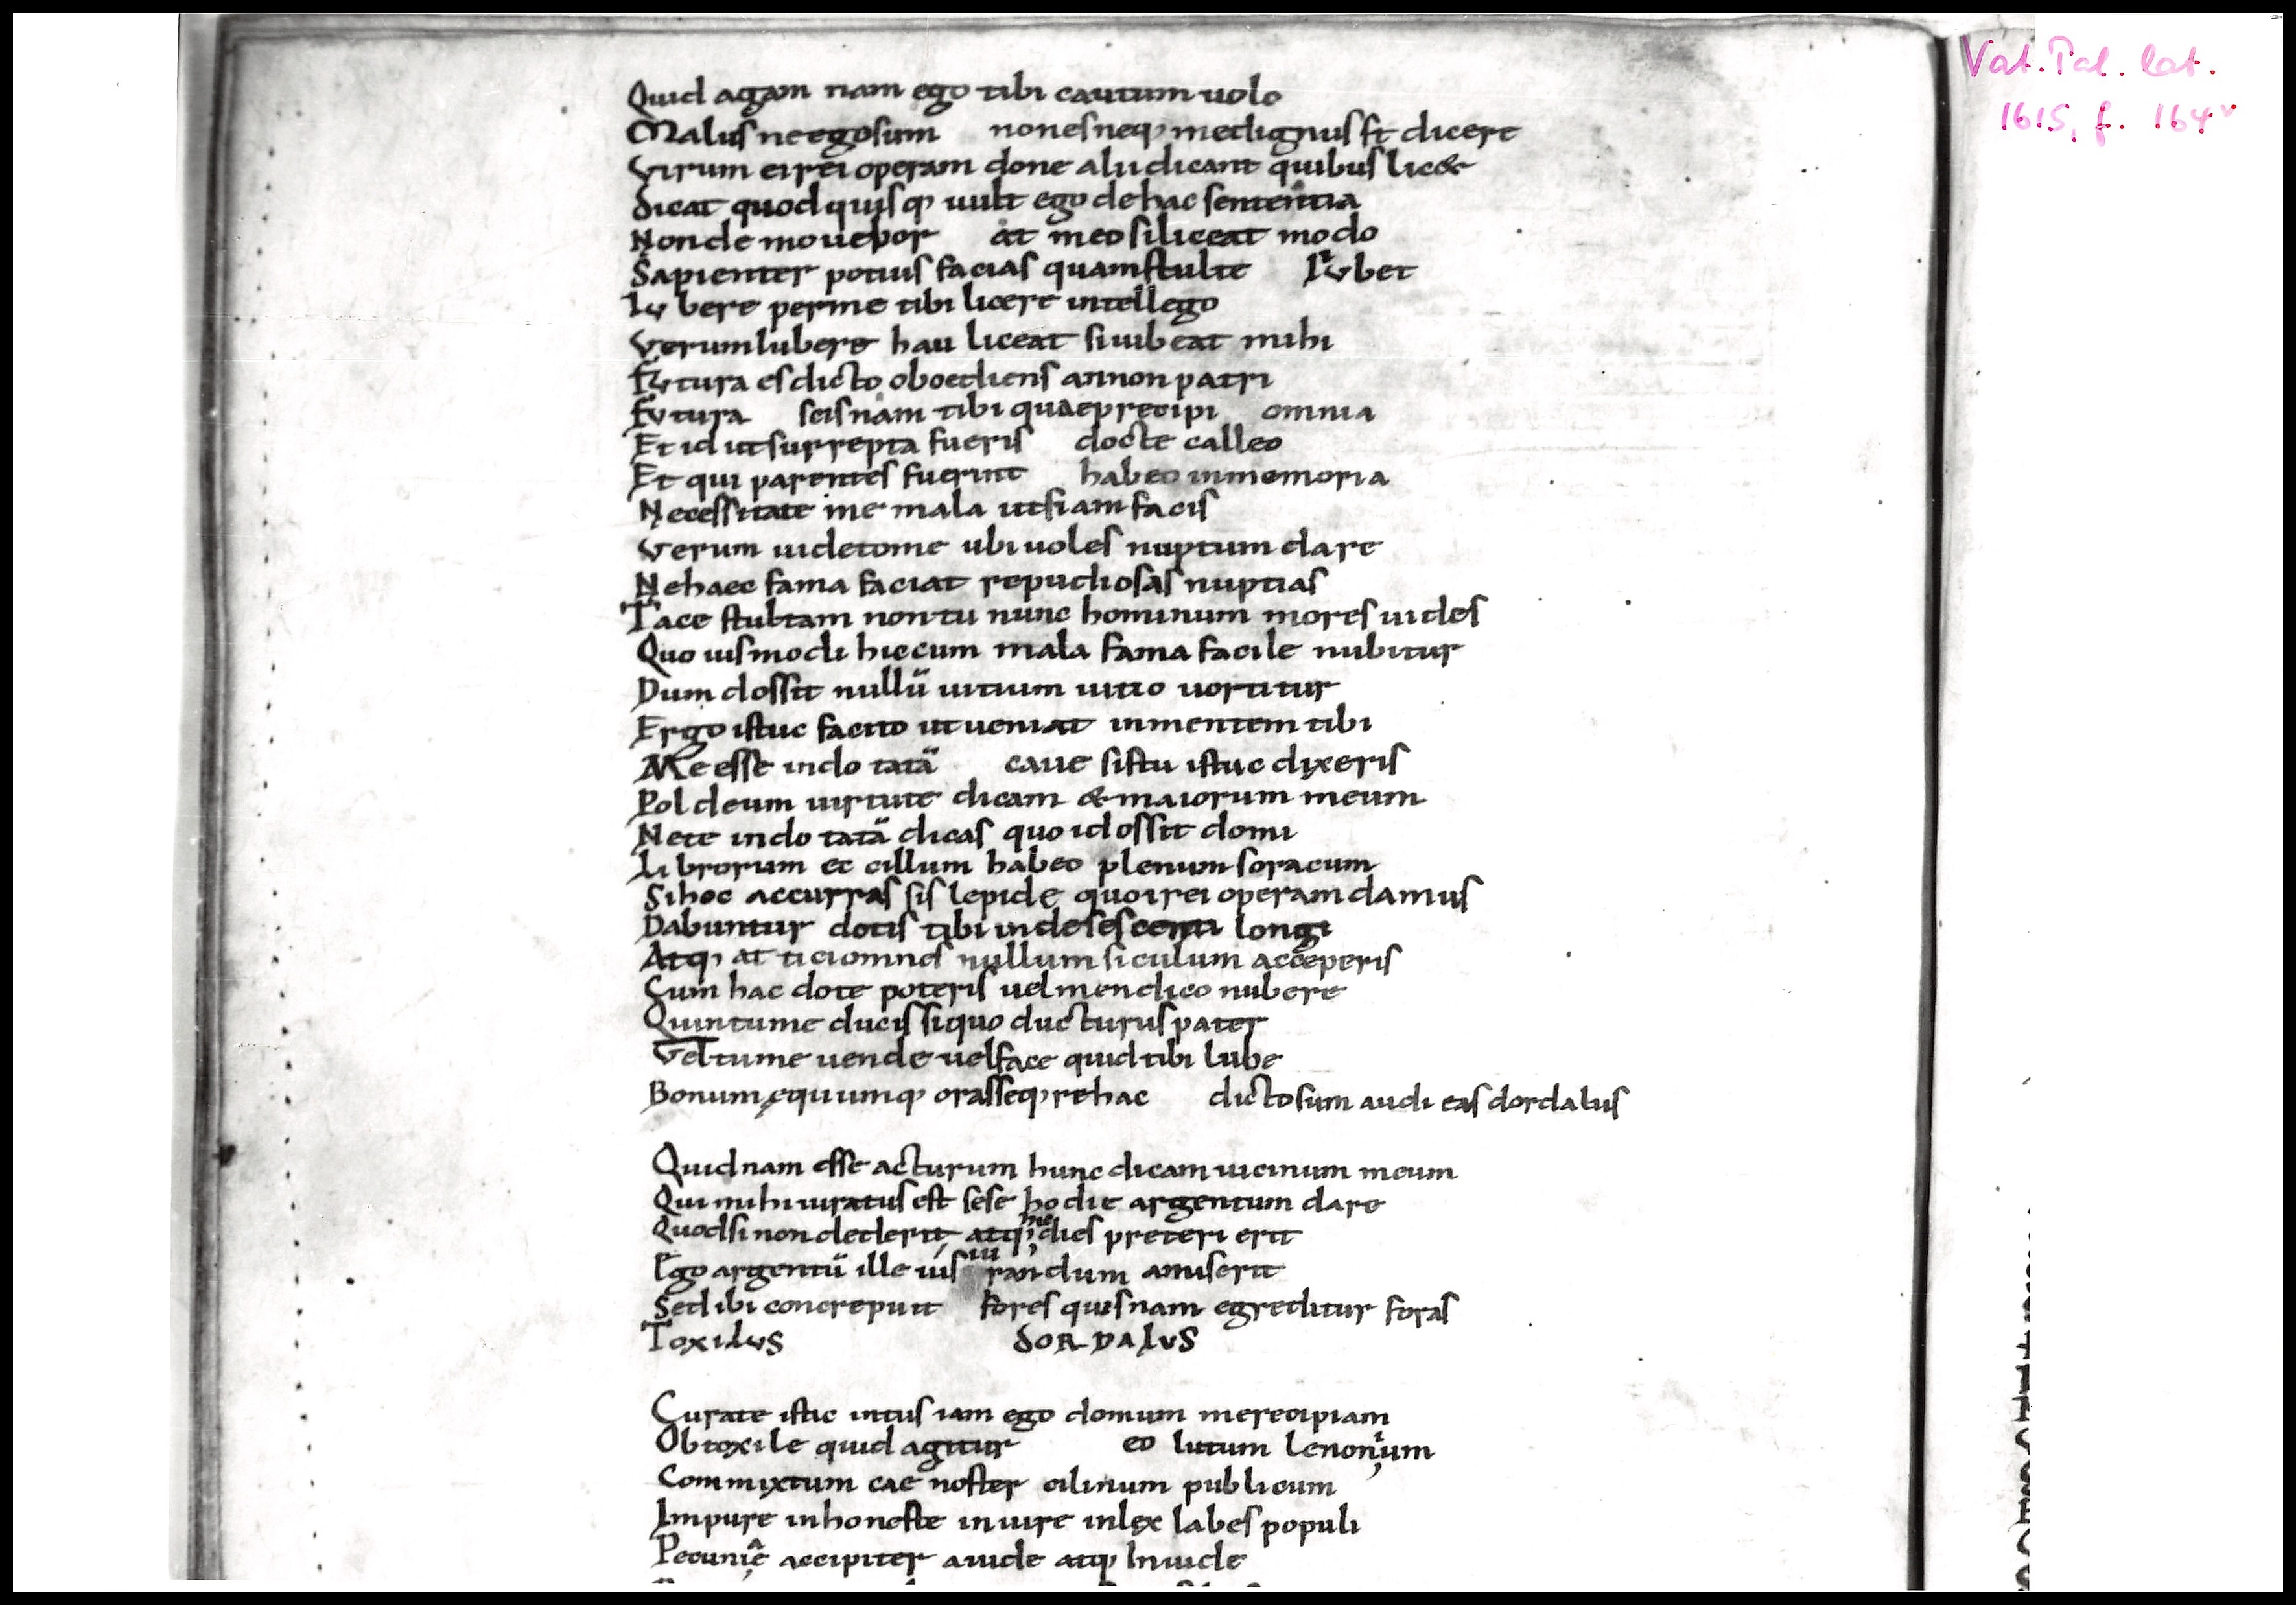 Vat. Pal. lat.
1615, f. 164v
Quid agam nam ego tibi cautum uolo
Malus ne ego sum non es neq; me dignus st dicere
Virum ei rei operam do ne alii dicant quibus lic&
Dicat quod quisq; uult ego de hac sententia
Non demouebor at meo si liceat modo
Sapienter potius facias quam stulte Lubet
Lubere per me tibi licere intellego
Verum lubere hau liceat si iubeat mihi
Futura es dicto oboediens annon patri
Futura scis nam tibi quae precipi omnia
Et id ut surrepta fueris docte calleo
Et qui parentes fuerint habeo in memoria
Necessitate me mala ut fiam facis
Verum uideto me ubi uoles nuptum dare
Ne haec fama faciat repudiosas nuptias
Tace stultam non tu nunc hominum mores uides
Quo iusmodi hic cum mala fama facile nubitur
Dum dossit nullū uitium uitio uortitur
Ergo istuc facito ut ueniat in mentem tibi
Me esse indo tatā caue sistu istuc dixeris
Pol deum uirtute dicam & maiorum meum
Ne te indo tatā dicas quo id ossit domi
Librorum ec cillum habeo plenum soracum
Si hoc accurras sis lepide quoi rei operam damus
Dabuntur dotis tibi inde sescenti longi
Atq; at tici omnes nullum siculum acceperis
Cum hac dote poteris uel mendico nubere
Quin tu me ducis si quo ducturus pater
Vel tu me uende uel face quid tibi lube
Bonum equumq; oras seq;re hac dicto sum audi eas dordalus
Quidnam esse acturum hunc dicam uicinum meum
Qui mihi iuratus est sese hodie argentum dare
Quod si non dederit atq; me dies preteri erit
Ego argentū ille ius iu randum amiserit
Sed ibi concrepuit fores quisnam egreditur foras
Toxilus DORDALVS
Curate istic intus iam ego domum me recipiam
Ob toxile quid agitur eo lutum lenonium
Commixtum cae noster cilinum publicum
Impure inhoneste iniure inlex labes populi
Pecunie accipiter auide atq; Inuide